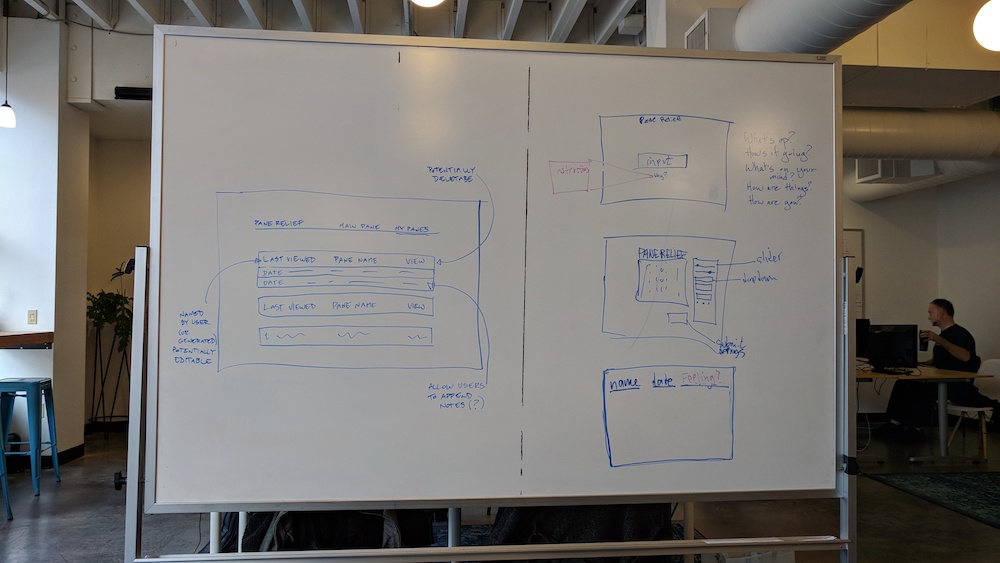 POTENTIALLY
PANE RELIEF MAIN PANE MY PANES
LAST VIEWED PANE NAME VIEW
DATE
DATE
LAST VIEWED PANE NAME VIEW
NAMED
BY USER
GENERATED)
POTENTIALLY
EDITABLE
ALLOW USERS
TO APPEND
NOTES (?)
Pane Relief
input
why?
What's up?
How's it going?
What's on your
mind?
How are things?
How are you?
PANE RELIEF
slider
dropdown
name date Feeling?